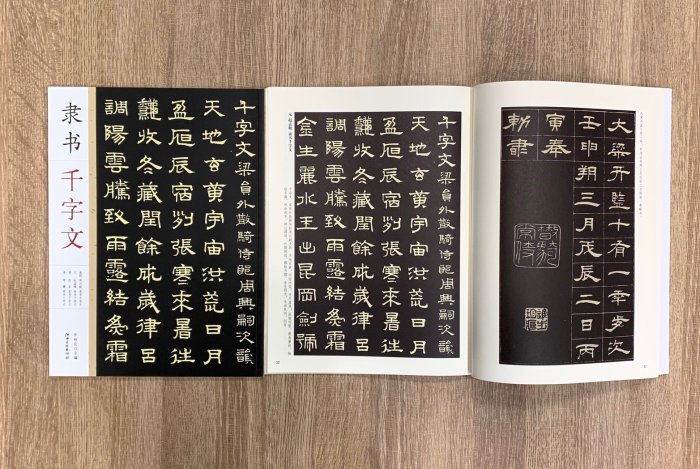 隶书
千字文
千字文梁員外散騎侍郎周興嗣次韻
天地玄黃宇宙洪荒日月
盈昃辰宿列張寒來暑往
龝收冬藏閏餘成歲律呂
調陽雲騰致雨露結為霜
千字文梁員外散騎侍郎周興嗣次韻
天地玄黃宇宙洪荒日月
盈昃辰宿列張寒來暑往
龝收冬藏閏餘成歲律呂
調陽雲騰致雨露結為霜
金生麗水玉出昆岡劍號
大梁天監十有一年歲次
壬申朔三月戊辰二日丙
寅奉
勅隸